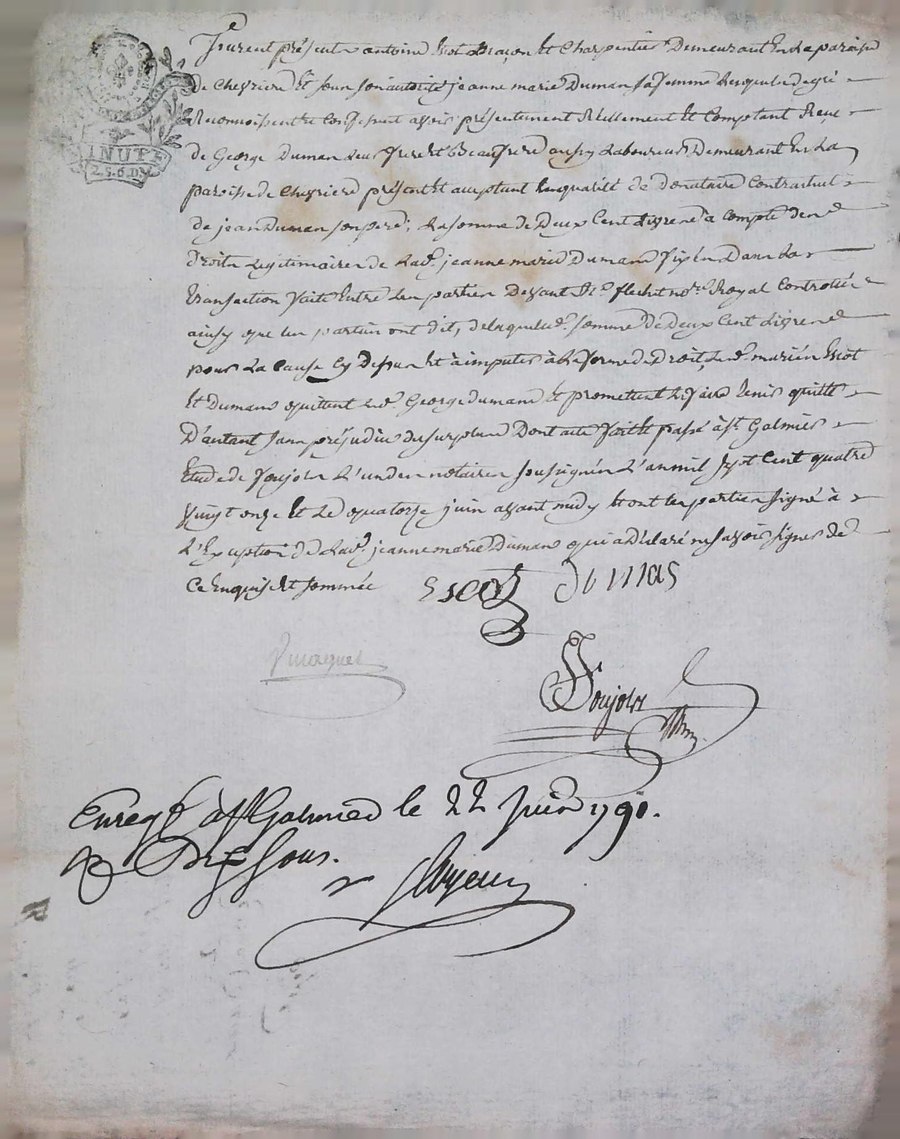 MINUTE
2. S. 6. D
furent présents antoine Escot maçon et Charpentier Demeurant En la paroisse
de chevriere Et sous son autorité jeanne marie Dumas sa femme Lesquels de gré
Reconnoissent et Confessent avoir présentement Réellement Et Comptant Receu
de George Dumas Leur frere et Beaufrere aussy Laboureur Demeurant En La
paroisse de chevriere présent Et acceptant En qualité de donataire Contractuel
de jean Dumas son pere, La somme de Deux Cent livres à compte des
droits Legitimaires de Lad. jeanne marie Dumas fixés Dans La
transaction faite Entre Les parties Devant Me. flechet nore. Royal Controllée
ainsy que les parties ont dit, de laquelle d. somme de deux Cent livres
pour La Cause Cy Dessus Et à imputer à La forme de Droit, Les d. mariés Escot
Et Dumas quittent Led. George dumas Et promettent Le faire tenir quitte
D'autant sans préjudice du surplus Dont acte fait Et passé à st Galmier
Etude de foujols L'un des notaires soussignés L'an mil sept Cent quatre
vingt onze Et Le quatorze juin avant midy Et ont Les parties signé à
L'Exception de Lad. jeanne marie Dumas qui a Déclaré ne savoir signer de
Ce Enquise Et sommée
Escot Dumas
foujols
Enregé. à st Galmier le 22 juin 1791.
sous.